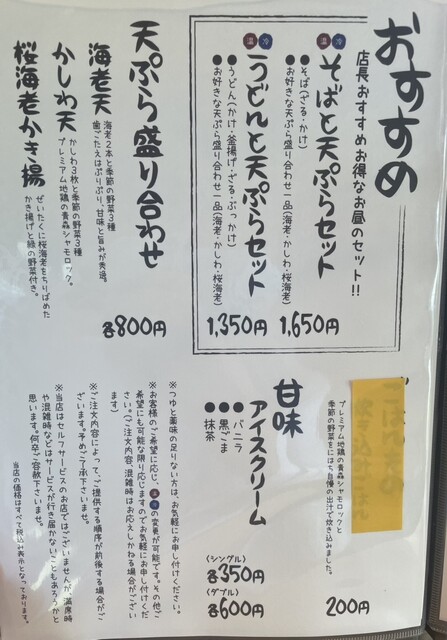 おすすめ
店長おすすめお得なお昼のセット!!
温 冷
そばと天ぷらセット
●そば(ざる・かけ)
●お好きな天ぷら盛り合わせ一品(海老・かしわ・桜海老)
1,650円
温 冷
うどんと天ぷらセット
●うどん(かけ・釜揚げ・ざる・ぶっかけ)
●お好きな天ぷら盛り合わせ一品(海老・かしわ・桜海老)
1,350円
天ぷら盛り合わせ
海老天
海老2本と季節の野菜3種
歯ごたえはぷりぷり、甘味と旨みが秀逸。
かしわ天
かしわ3枚と季節の野菜3種
プレミアム地鶏の青森シャモロック。
桜海老かき揚
ぜいたくに桜海老をちりばめた
かき揚げと緑の野菜付き。
各800円
プレミアム地鶏の青森シャモロックと
季節の野菜をにはち自慢の出汁で炊き込みました。
200円
甘味
アイスクリーム
●バニラ
●黒ごま
●抹茶
(シングル)
各350円
(ダブル)
各600円
※つゆと薬味の足りない方は、お気軽にお申し付けください。
※お客様のご希望に応じ、温 冷の変更が可能です。その他ご
希望にも可能な限り応じますのでお気軽にお申し付けくだ
さい。(ご注文内容、混雑時はお応えしかねる場合がござい
ます)
※ご注文内容によって、ご提供する順序が前後する場合がご
ざいます。予めご了承下さいませ。
※当店はセルフサービスのお店ではございませんが、満席時
や混雑時などはサービスが行き届かないこともあろうかと
思います。何卒ご容赦下さいませ。
当店の価格はすべて税込み表示となっております。